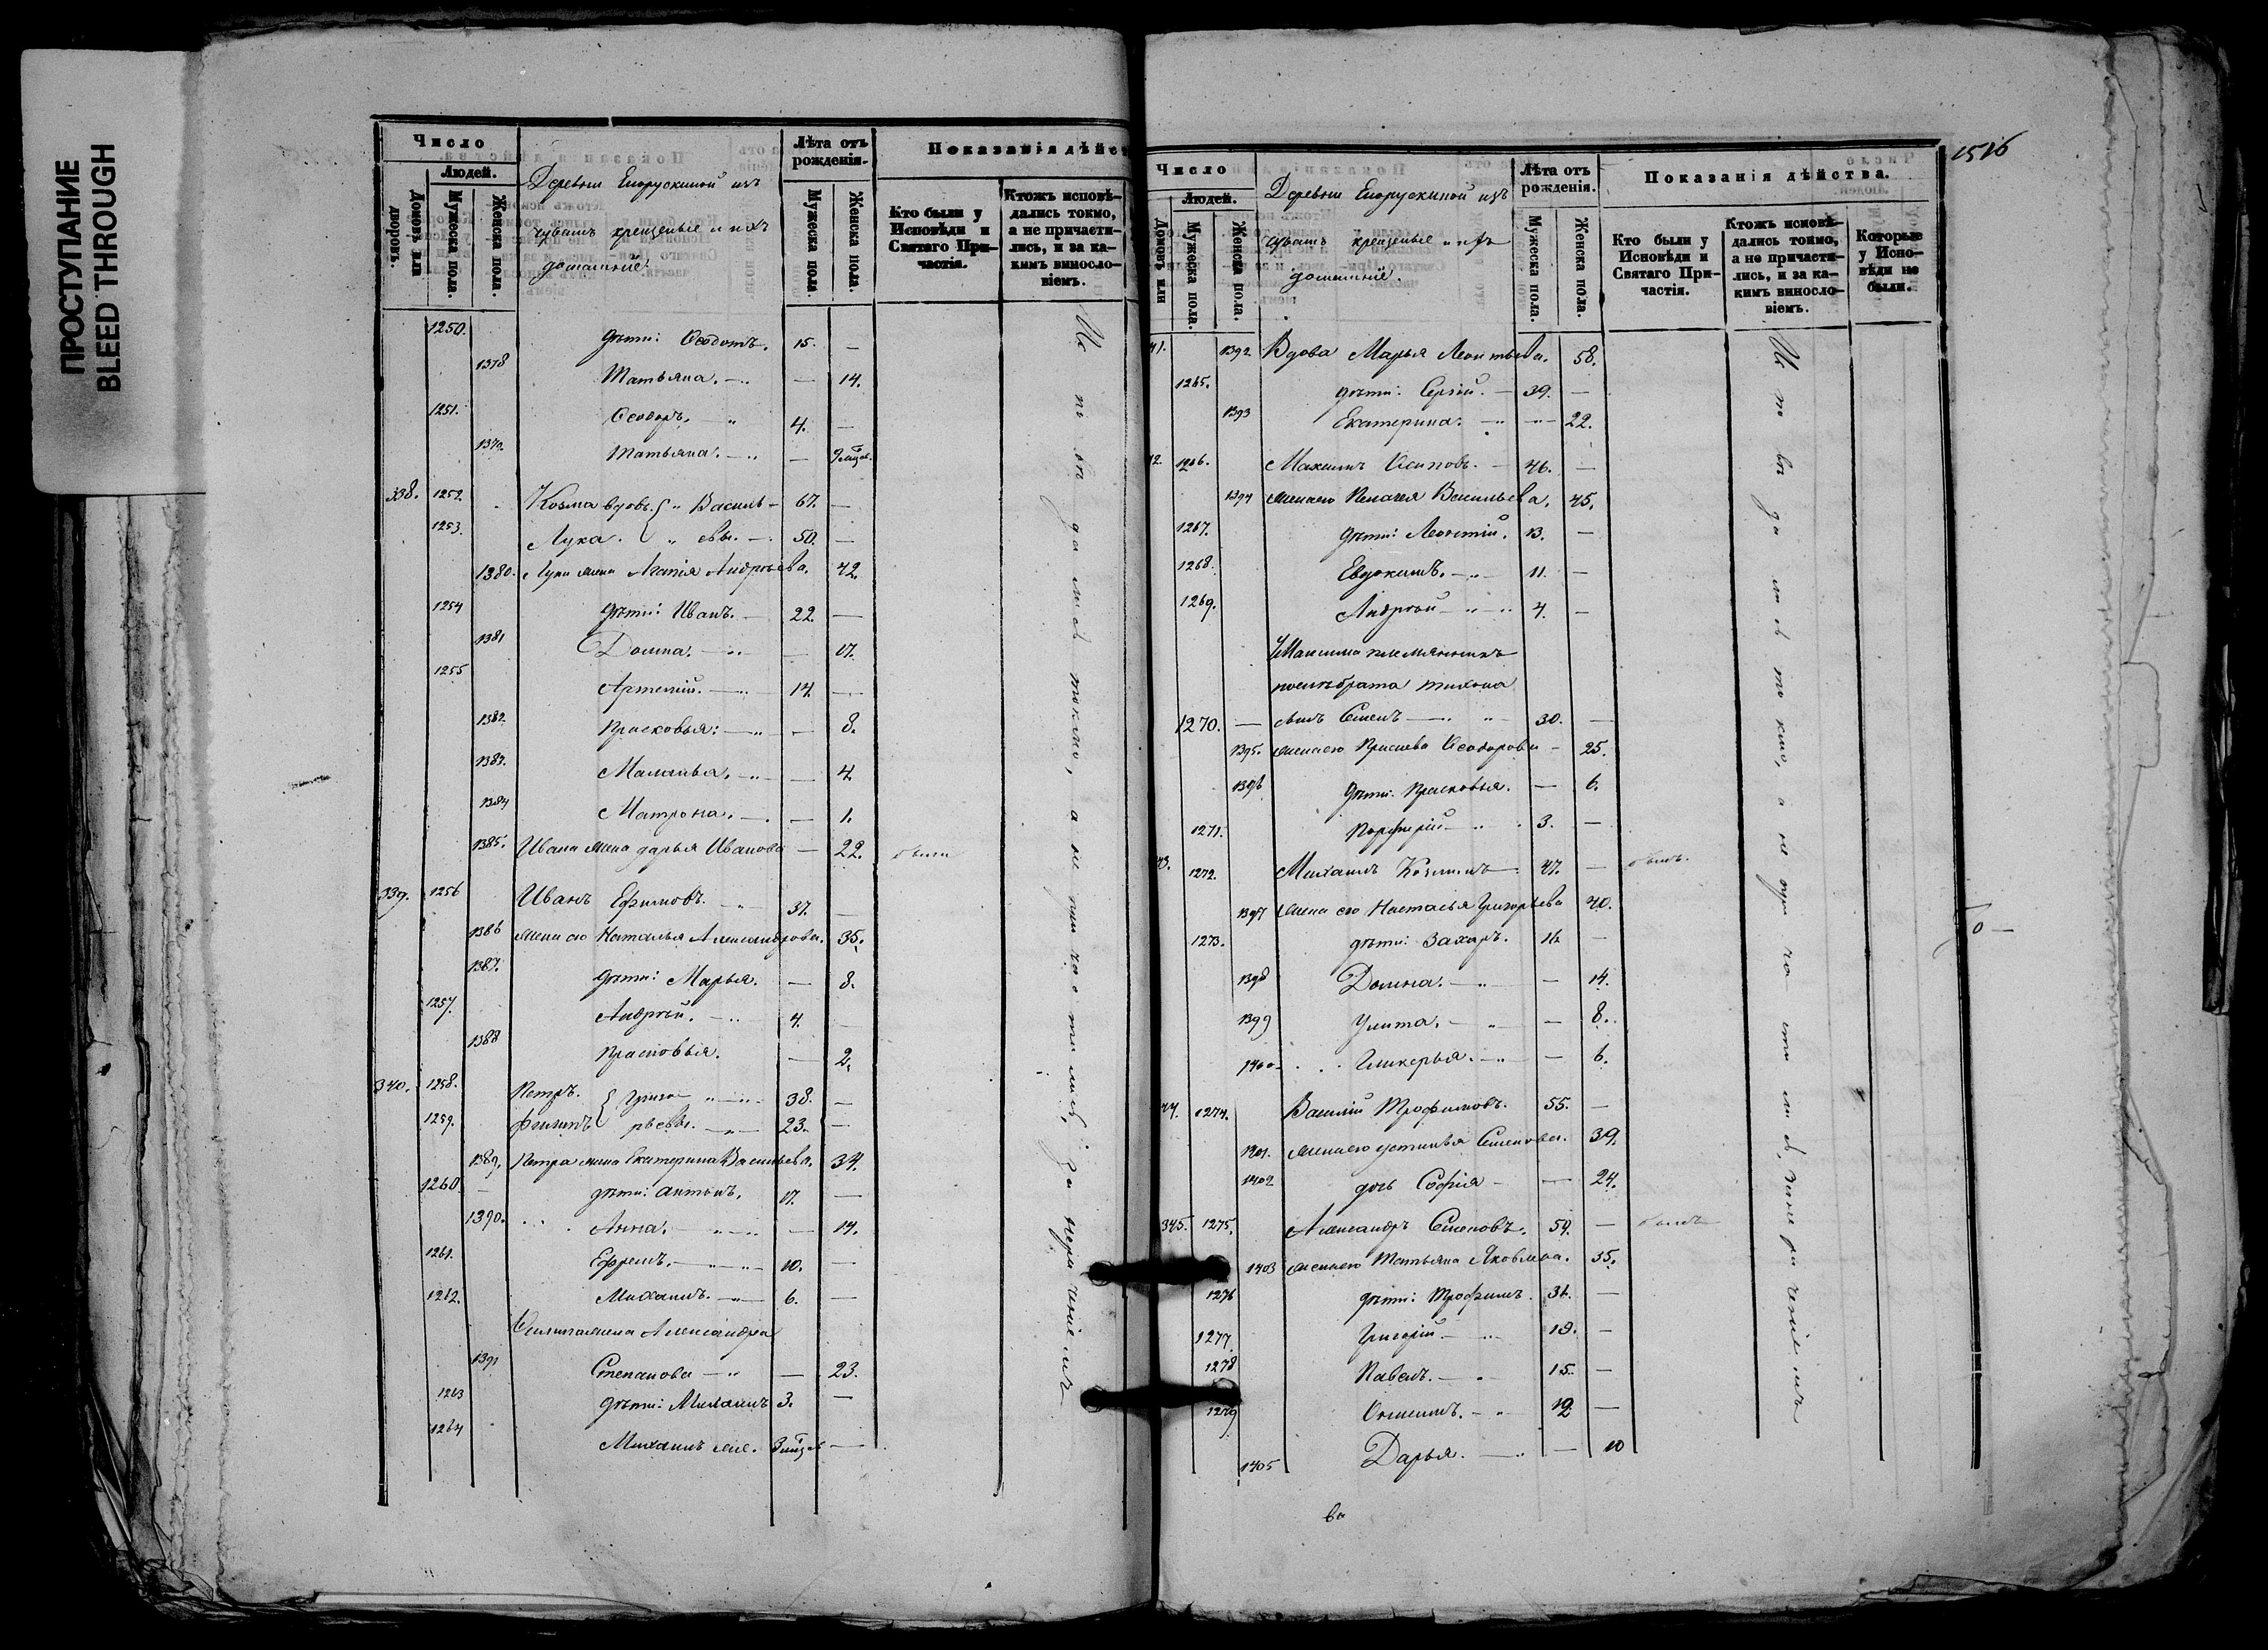 ПРОСТУПАНИЕ
BLEED THROUGH
Число
Людей.
Домовъ или дворовъ.
Мужеска пола.
Женска пола.
Деревни Енорускиной изъ
чувашъ крещеные и ихъ
домашніе.
Лѣта отъ рожденія.
Мужеска пола.
Женска пола.
Показанія дѣйс
Кто были у Исповѣди и Святаго При-частія.
Ктожъ исповѣ-дались токмо, а не причасти-лись, и за ка-кимъ виносло-віемъ.
1250. дѣти: Ѳеодотъ. 15. —
1378 Татьяна. — 14.
1251. Ѳеодоръ. 4. —
1379. Татьяна. —
338. 1252. Козма вдовъ. Василь- 67. —
1253. Лука. евы. 50. —
1380. Луки жена Агапія Андреева. 42.
1254 дѣти: Иванъ. 22. —
1381 Домна. — 17.
1255 Артемій. 14. —
1382. Прасковья: — 8.
1383. Маланья. — 4.
1384 Матрона. — 1.
1385. Ивана жена дарья Иванова — 22. была
339. 1256 Иванъ Ефимовъ. 37. —
1386 жена его Наталья Александрова. 35.
1387. дѣти: Марья. — 8.
1257. Андрей. 4. —
1388 Прасковья. — 2.
340. 1258. Петръ. Григо- 38. —
1259. Филипъ рьевы. 23. —
1389. Петра жена Екатерина Васильева. 34.
1260. дѣти: Антонъ. 17. —
1390. Анна. — 14.
1261. Ефремъ. 10. —
1262. Михаилъ. 6. —
Филипа жена Александра
1391 Степанова — 23.
1263 дѣти: Михаилъ 3. —
1264 Михаилъ —
Исповѣдались токмо, а не причастились, за нерачениемъ
1516
Число
Людей.
Домовъ или
Мужеска пола.
Женска пола.
Деревни Енорускиной изъ
чувашъ крещеные и ихъ
домашніе.
Лѣта отъ рожденія.
Мужеска пола.
Женска пола.
Показанія дѣйства.
Кто были у Исповѣди и Святаго При-частія.
Ктожъ исповѣ-дались токмо, а не причасти-лись, и за ка-кимъ виносло-віемъ.
Которые у Испо-вѣди не были.
41. 1392. Вдова Марья Леонтьева. 58.
1265. дѣти: Сергій. 39. —
1393 Екатерина. 22.
42. 1266. Максимъ Осиповъ. 46. —
1394 жена его Пелагея Васильева. 45.
1267. дѣти: Леонтій. 13. —
1268. Евдокимъ. 11. —
1269. Андрей 4. —
Максима племянникъ
брата Тихона
1270. — сынъ Семенъ 30. —
1395. жена его Ѳеодорова 25.
1396 дѣти: Прасковья. — 6.
1271. Порфирій 3. —
43. 1272. Михаилъ Козминъ 47. — былъ.
1397 жена его Настасья Григорьева 40.
1273. дѣти: Захаръ. 16. —
1398 Домна. — 14.
1399 Улита. — 8.
1400. Гликерья. — 6.
44. 1274. Василій Трофимовъ. 55. —
1401. жена его устинья Семенова. 39.
1402 дочь Софія — 24.
345. 1275. Александръ Семеновъ. 59. — былъ
1403 жена его Татьяна Яковлева. 35.
1276 дѣти: Трофимъ. 31. —
1277. Григорій 19. —
1278 Павелъ. 15. —
1279 12 —
1405 Дарья. — 10
Исповѣдались токмо, а не причастились, за нерачениемъ